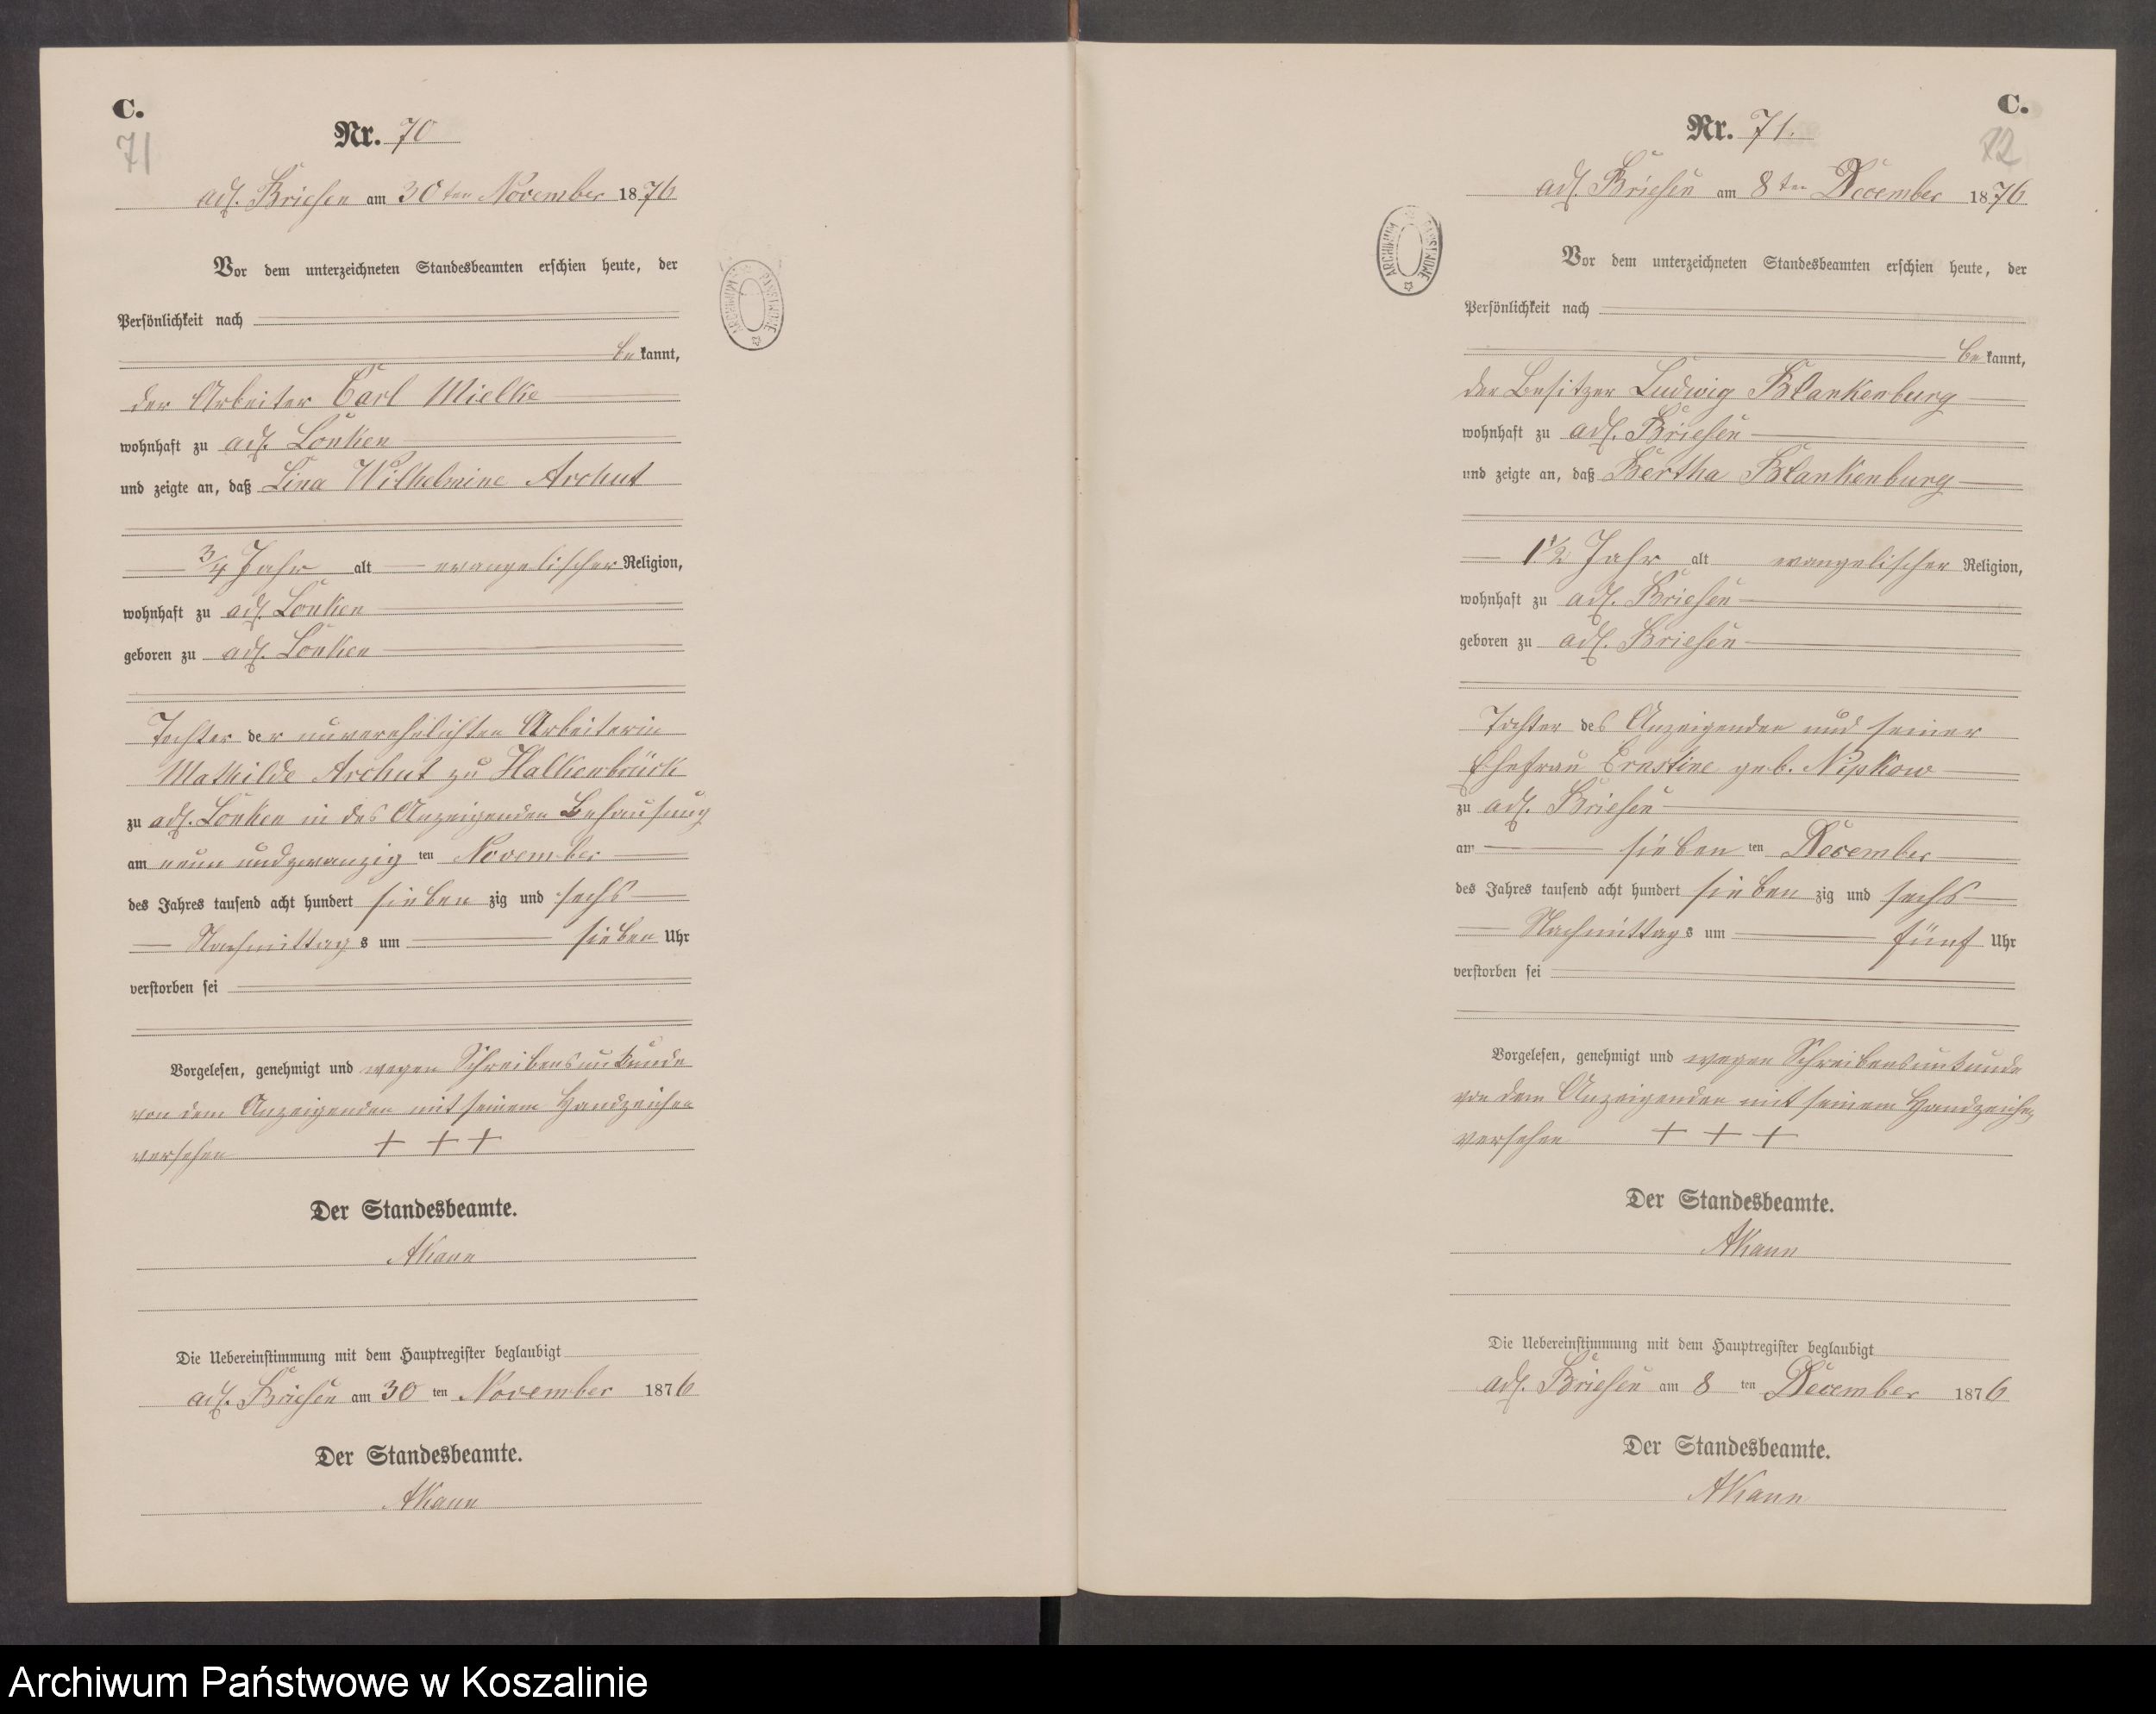 C.
71
Nr. 70
adl. Briesen am 30ten November 1876
Vor dem unterzeichneten Standesbeamten erschien heute, der
Persönlichkeit nach
bekannt,
der Arbeiter Carl Mielke
wohnhaft zu adl. Lonken
und zeigte an, daß Lina Wilhelmine Archut
3/4 Jahr alt evangelischer Religion,
wohnhaft zu adl. Lonken
geboren zu adl. Lonken
Tochter der unverehelichten Arbeiterin
Mathilde Archut zu
zu adl. Lonken in des Anzeigenden Behausung
am neun und zwanzig ten November
des Jahres tausend acht hundert sieben zig und sechs
Nachmittags um sieben Uhr
verstorben sei
Vorgelesen, genehmigt und wegen Schreibensunkunde
von dem Anzeigenden mit seinem Handzeichen
versehen + + +
Der Standesbeamte.
AKann
Die Uebereinstimmung mit dem Hauptregister beglaubigt
adl. Briesen am 30 ten November 1876
Der Standesbeamte.
AKann
ARCHIWUM PAŃSTWOWE
C.
72
Nr. 71.
adl. Briesen am 8ten December 1876
ARCHIWUM PAŃSTWOWE
Vor dem unterzeichneten Standesbeamten erschien heute, der
Persönlichkeit nach
bekannt,
der Besitzer Ludwig Blankenburg
wohnhaft zu adl. Briesen
und zeigte an, daß Bertha Blankenburg
1 1/2 Jahr alt evangelischer Religion,
wohnhaft zu adl. Briesen
geboren zu adl. Briesen
Tochter des Anzeigenden und seiner
Ehefrau Ernstine geb. Nipkow
zu adl. Briesen
am sieben ten December
des Jahres tausend acht hundert sieben zig und sechs
Nachmittags um fünf Uhr
verstorben sei
Vorgelesen, genehmigt und wegen Schreibensunkunde
von dem Anzeigenden mit seinem Handzeichen
versehen + + +
Der Standesbeamte.
AKann
Die Uebereinstimmung mit dem Hauptregister beglaubigt
adl. Briesen am 8 ten December 1876
Der Standesbeamte.
AKann
Archiwum Państwowe w Koszalinie